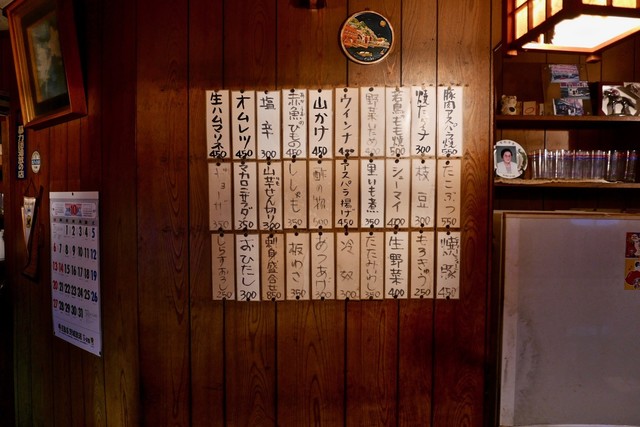 豚肉アスパラ焼 550
焼たら子 300
若鳥もも焼 500
野菜いため
ウインナ 400
山かけ 450
赤魚ひもの 450
塩辛 300
オムレツ 450
生ハムマリネ 450
たこぶつ 550
枝豆 300
シューマイ 400
里いも煮 350
アスパラ揚げ 450
酢の物 500
ししゃも 350
山芋せん切り 300
マカロニサラダ 350
焼豚 450
もろきゅう 250
生野菜 400
たたみいわし 350
冷奴 300
あつあげ 300
板わさ 350
刺身盛合せ 850
おひたし 300
しらすおろし 250
10
1 2 3 4 5
6 7 8 9 10 11 12
13 14 15 16 17 18 19
20 21 22 23 24 25 26
27 28 29 30 31